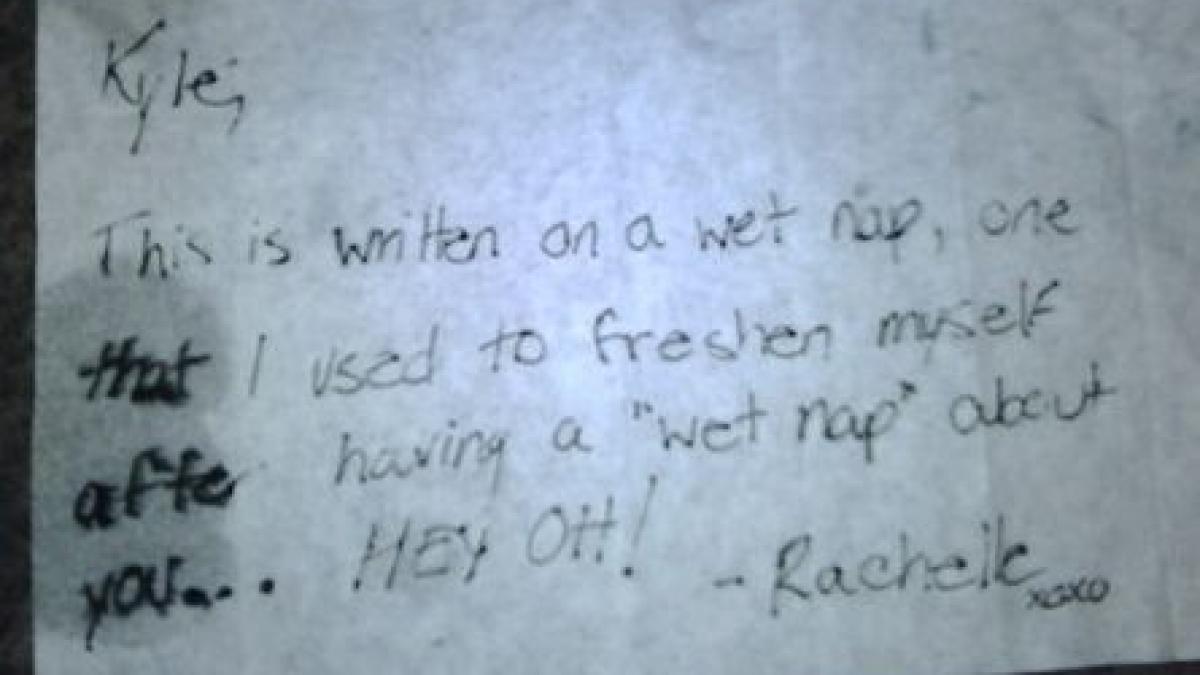 Kyle,
This is written on a wet nap, one
that I used to freshen myself
after having a "wet nap" about
you... HEY OH!
- Rachelle
xoxo